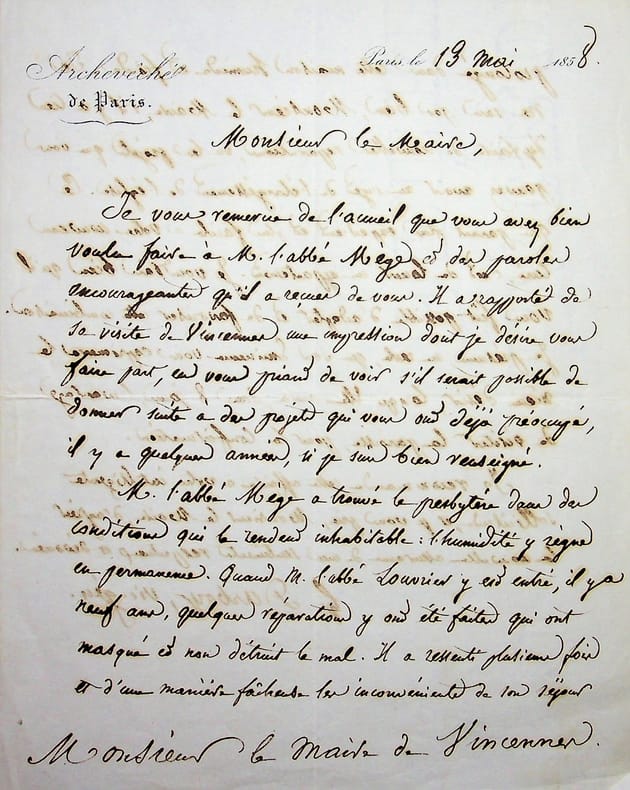 Archevêché
de Paris.
Paris, le 13 mai 1858.
Monsieur le Maire,
Je vous remercie de l'accueil que vous avez bien
voulu faire à M. l'abbé Mège et des paroles
encourageantes qu'il a reçues de vous. Il a rapporté de
sa visite de Vincennes une impression dont je désire vous
faire part, en vous priant de voir s'il serait possible de
donner suite a des projets qui vous ont déjà préoccupé,
il y a quelques années, si je suis bien renseigné.
M. l'abbé Mège a trouvé le presbytère dans des
conditions qui le rendent inhabitable : l'humidité y règne
en permanence. Quand M. l'abbé Louvrier y est entré, il y a
neuf ans, quelques réparations y ont été faites qui ont
masqué et non détruit le mal. Il a ressenti plusieurs fois
et d'une manière fâcheuse les inconvénients de son séjour
Monsieur le Maire de Vincennes.